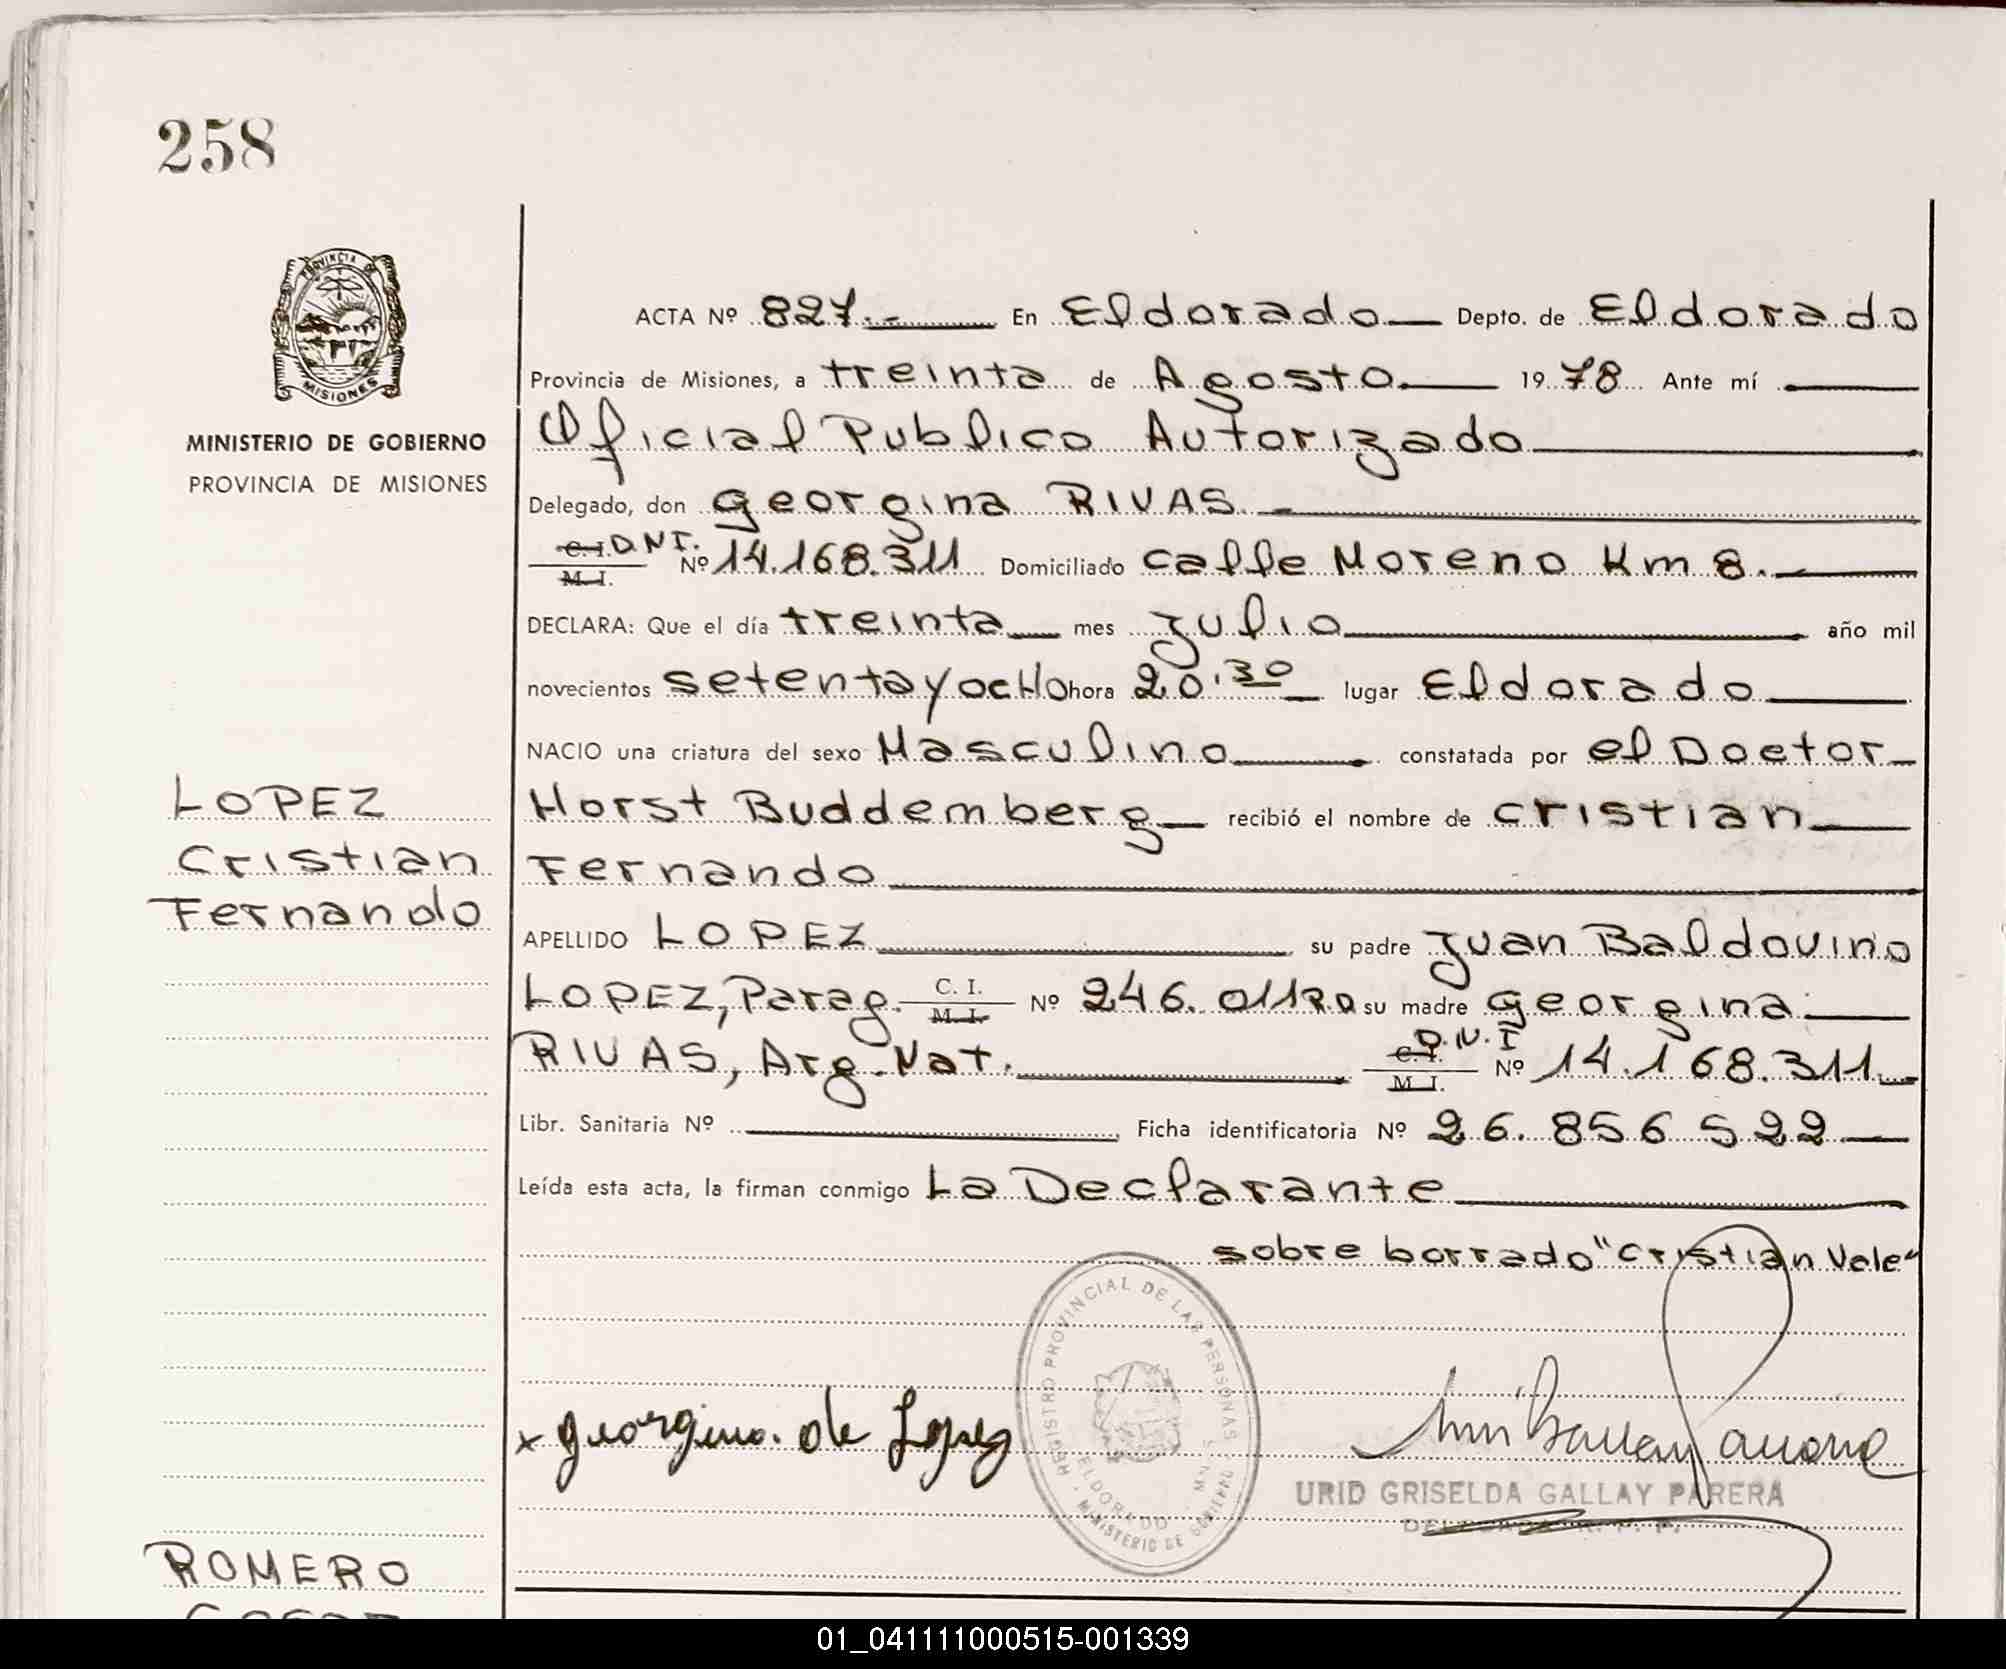 258
PROVINCIA DE
MISIONES
MINISTERIO DE GOBIERNO
PROVINCIA DE MISIONES
ACTA Nº 827.- En Eldorado Depto. de Eldorado
Provincia de Misiones, a treinta de Agosto 1978 Ante mí
Oficial Publico Autorizado
Delegado, don Georgina RIVAS.
C. I. D.N.I.
M. I. Nº 14.168.311 Domiciliado calle Moreno Km 8.
DECLARA: Que el día treinta mes Julio año mil
novecientos setenta y ocHo hora 20,30 lugar Eldorado
NACIO una criatura del sexo Masculino constatada por el Doctor
LOPEZ
Cristian
Fernando
Horst Buddemberg recibió el nombre de Cristian
Fernando
APELLIDO LOPEZ su padre Juan Baldovino
LOPEZ, Parag. C. I.
M. I. Nº 246. su madre Georgina
RIVAS, Arg. Nat. C. I. D.N.I
M. I. Nº 14.168.311
Libr. Sanitaria Nº Ficha identificatoria Nº 26.856 522
Leída esta acta, la firman conmigo La Declarante
sobre borrado "Cristian Vale"
REGISTRO PROVINCIAL DE LAS PERSONAS
ELDORADO
MINISTERIO DE GOBIERNO
x Georgina. de Lopez
URID GRISELDA GALLAY PARERA
ROMERO
01_041111000515-001339